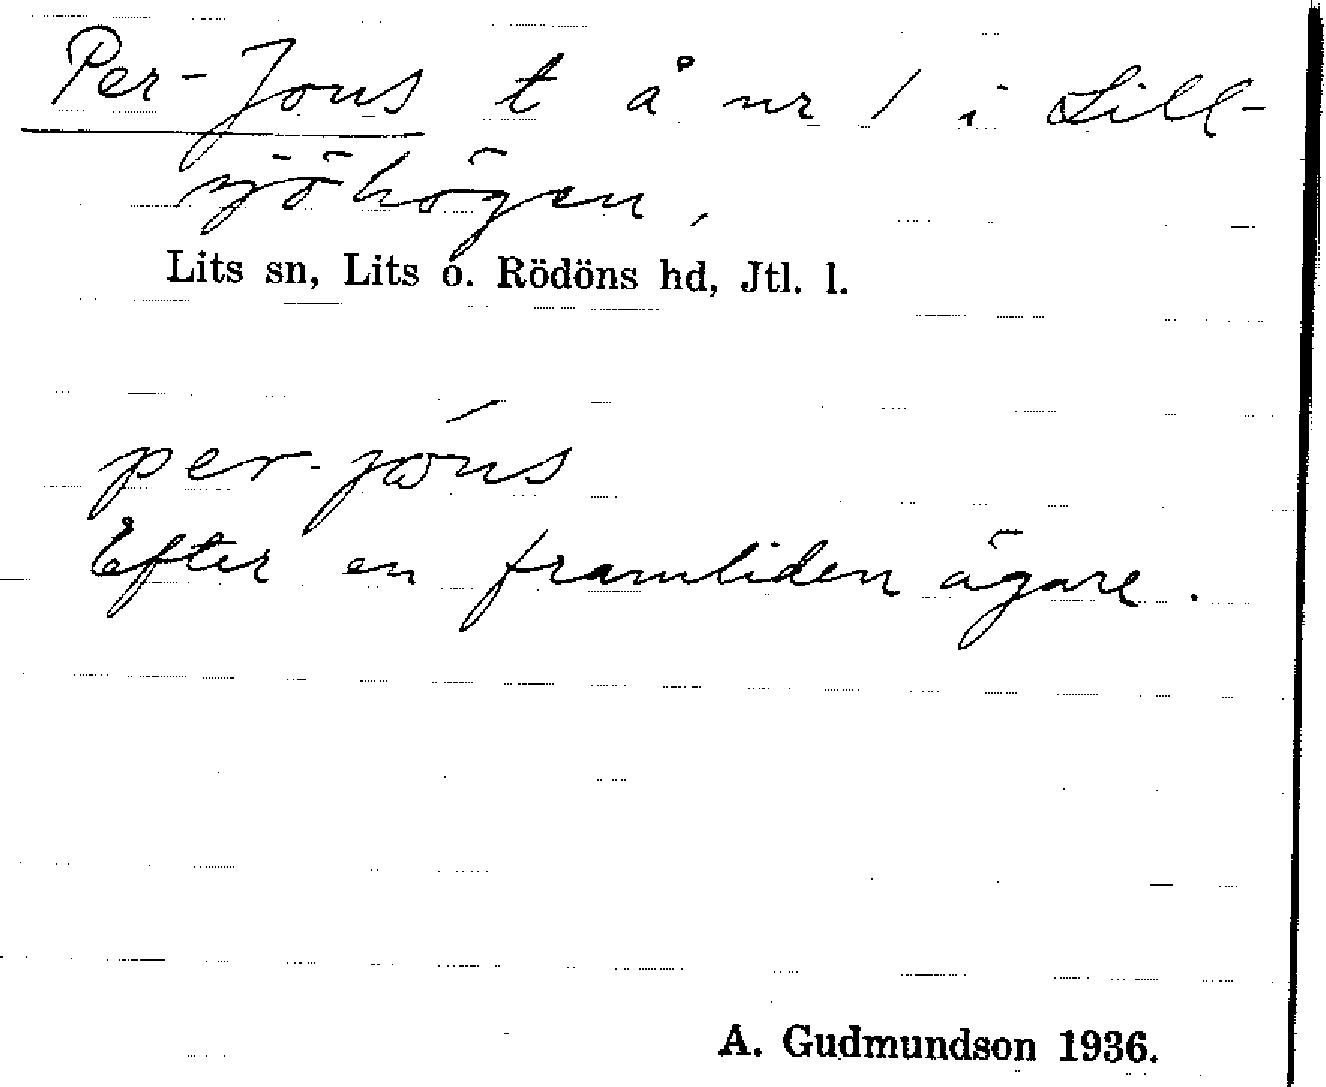 Per-Jons t å nr 1 i Lill-
sjöhögen,
Lits sn, Lits o. Rödöns hd, Jtl. l.
per-jóns
Efter en framliden ägare.
A. Gudmundson 1936.